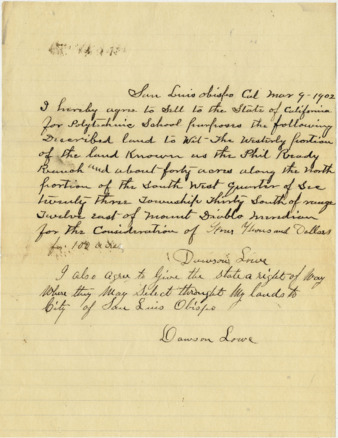 San Luis obispo Cal Mar 9 - 1902
I hereby agree to Sell to the State of California
for Polytechnic School purposes the following
Described land to Wit - The Westerly portion
of the land Known as the Phil Ready
Ranch and about forty acres along the North
portion of the South West Quarter of Sec
twenty three Township Thirty South of range
Twelve east of Mount Diablo Meridian
for the Consideration of Four Thousand Dollars
for 108 acres
Dawson Lowe
I also Agree to Give the State a right of Way
Where they May Select throught My lands to
City of San Luis Obispo
Dawson Lowe